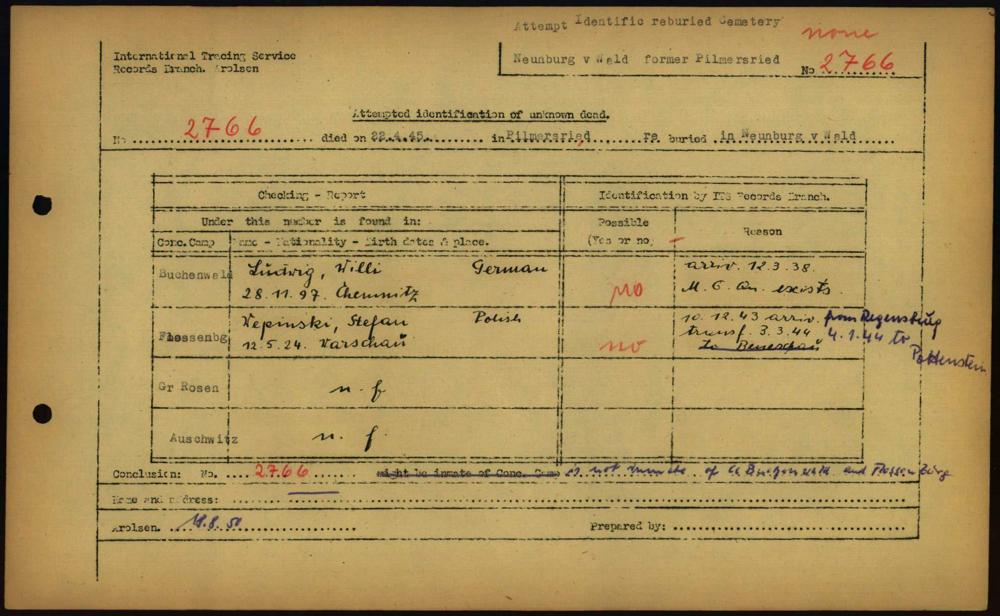 Attempt Identific reburied Cemetery
none
Neunburg v Wald former Pilmersried
No 2766
International Tracing Service
Records Branch. Arolsen
Attempted identification of unknown dead.
No 2766 died on 22.4.45. in Pilmersried, re buried in Neunburg v Wald
Checking - Report
Identification by ITS Records Branch.
Under this number is found in:
Possible
(Yes or no)
Reason
Conc. Camp
Name - Nationality - Birth dates & place.
Buchenwald
Ludwig, Willi German
28.11.97. Chemnitz
no
arriv. 12.3.38.
exists
Flossenbg
Wepinski, Stefan Polish
12.5.24. Warschau
no
10.12.43 arriv. from Regensburg
transf. 3.3.44 4.1.44 to
to Beneschau Pottenstein
Gr Rosen
n. f
Auschwitz
n. f.
Conclusion: No. 2766 might be inmate of Conc. Camp is not inmate of Cc and Flossenbürg
Name and address:
Arolsen. 50
Prepared by: